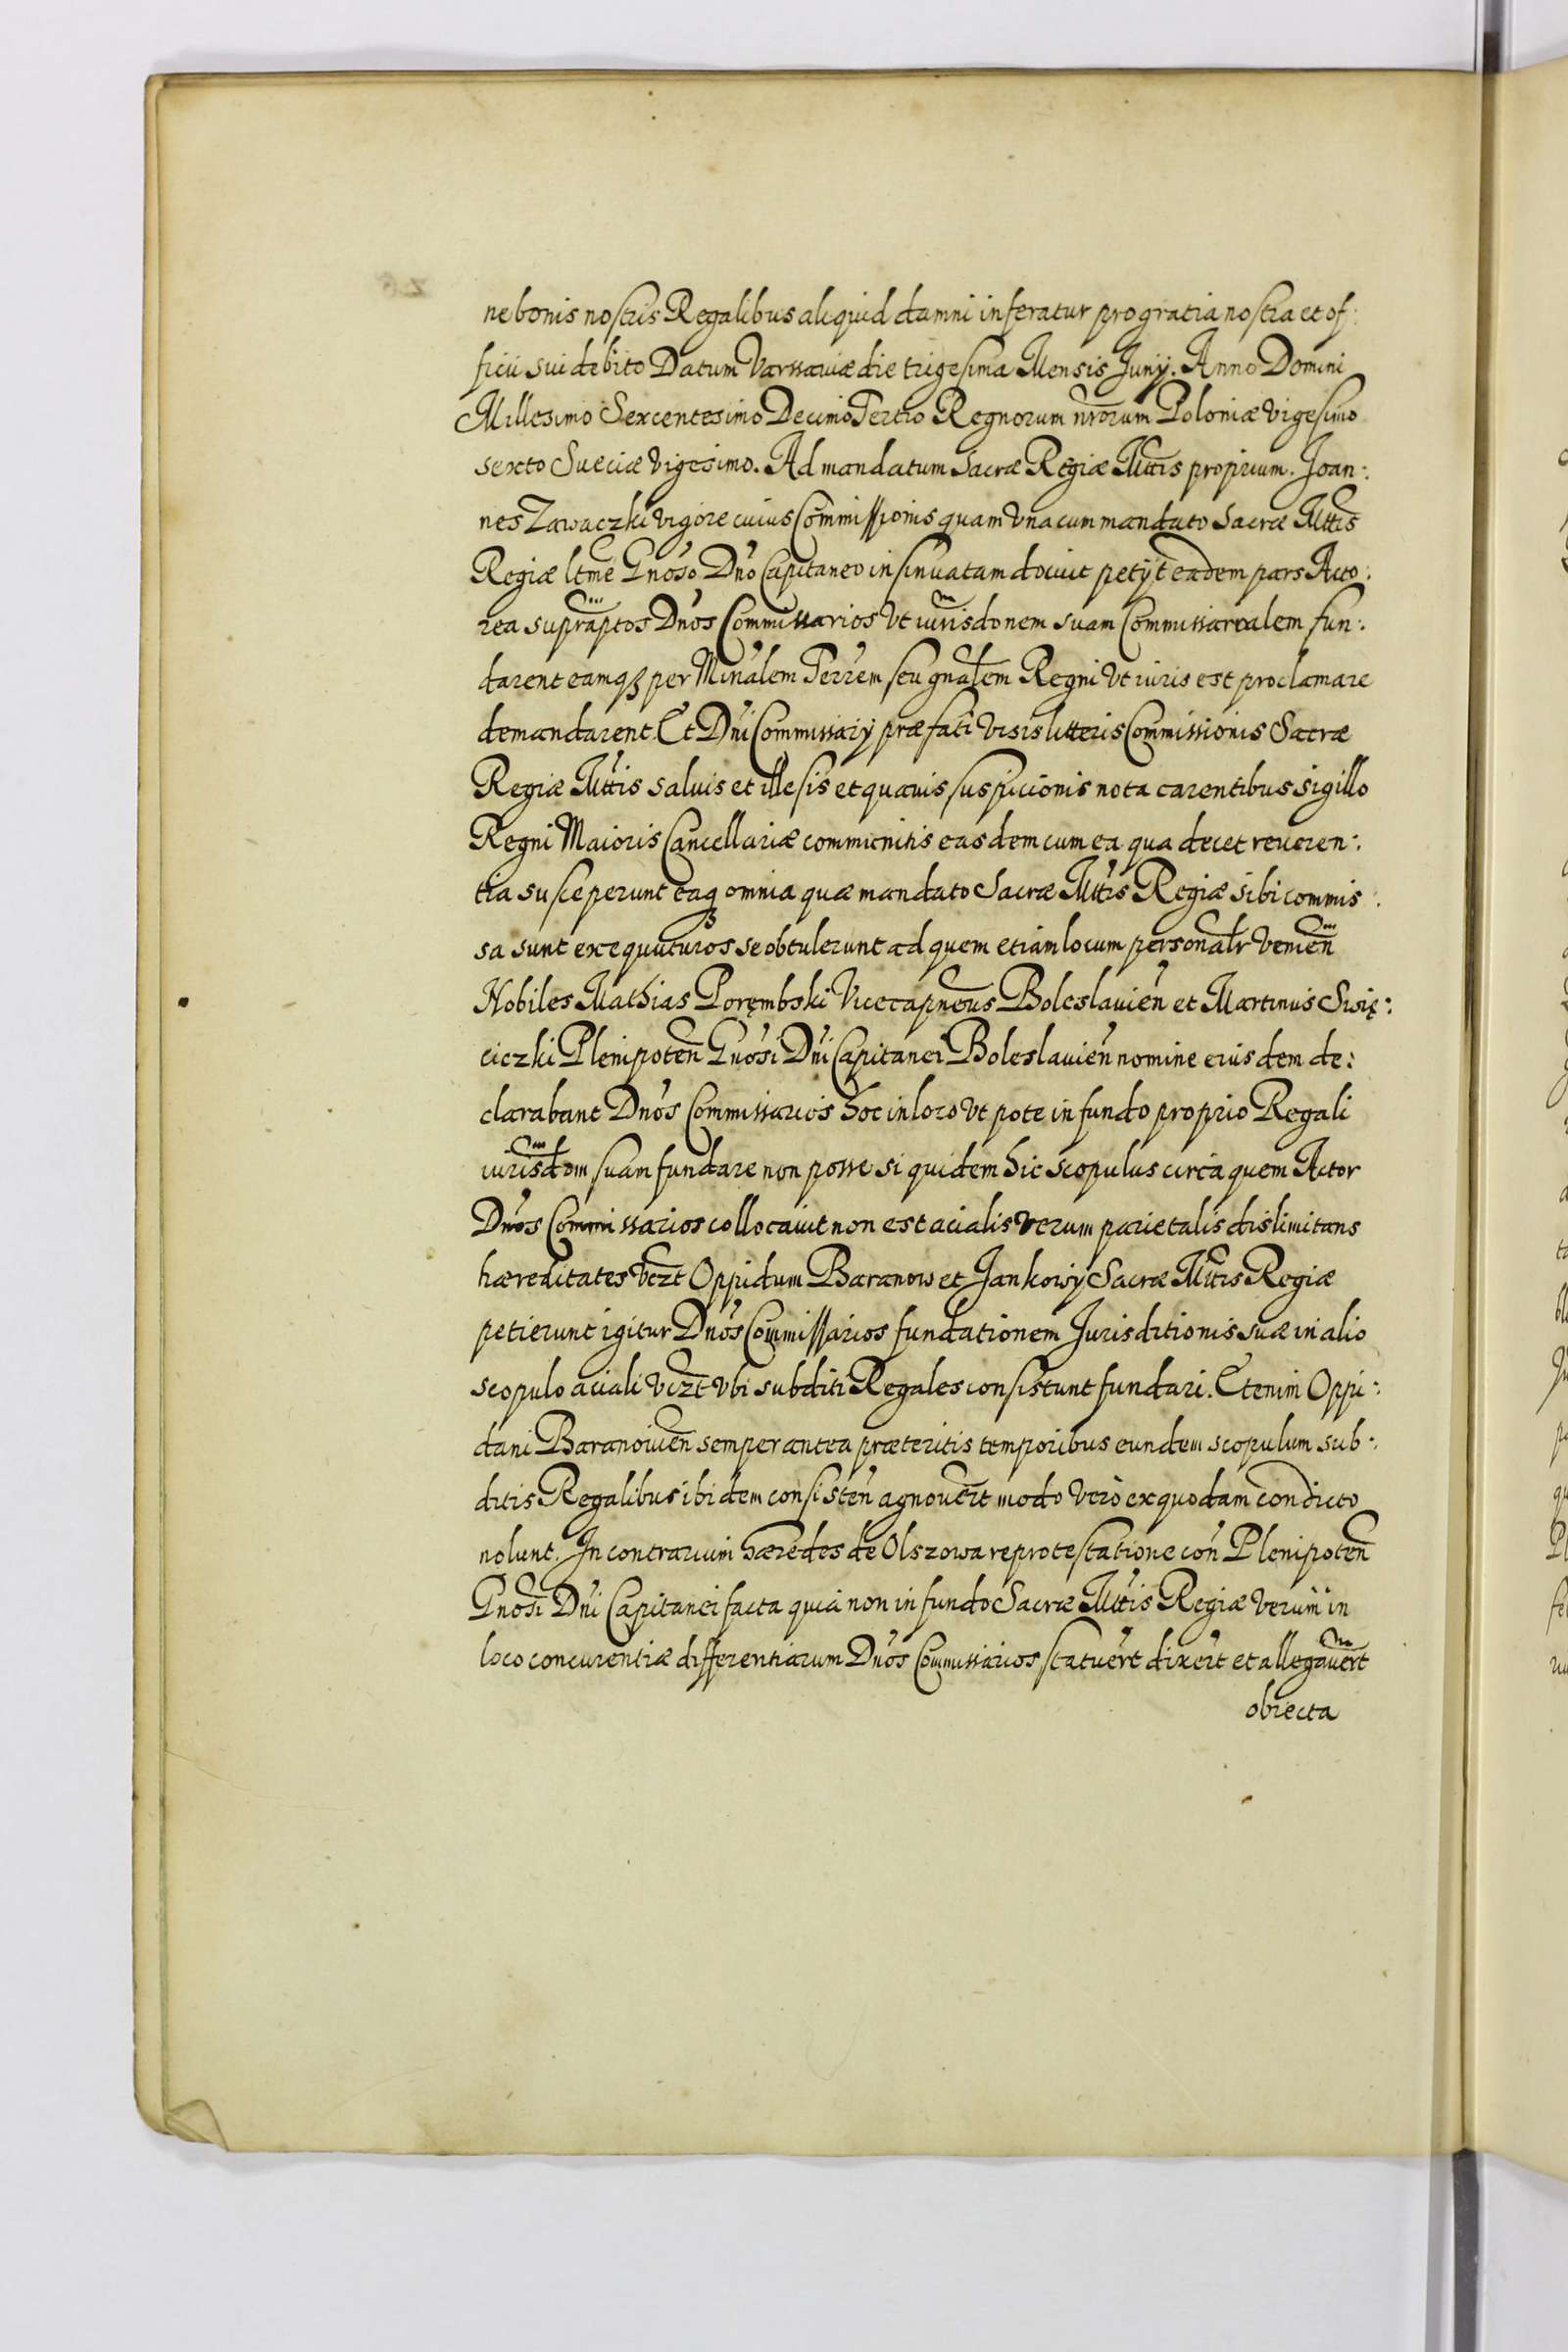 ne bonis nostris Regalibus aliquid damni inferatur pro gratia nostra et of:
ficii sui debito Datum Varssaviæ die trigesima Mensis Junij. Anno Domini
Millesimo Sexcentesimo Decimo Tertio Regnorum nrorum Poloniæ vigesimo
sexto Sueciæ vigesimo. Ad mandatum Sacræ Regiæ Mttis proprium. Joan:
nes Zawaczki vigore cuius Commissionis quam vna cum mandato Sacræ Mttis
Regiæ ltme Gnoso Dno Capitaneo insinuatam docuit petÿt eadem pars Acto:
rea supraptos Dnos Commissarios vt iurisdonem suam Commissarealem fun:
darent eamqȝ per Minalem Terrem seu gnalem Regni vt iuris est proclamare
demandarent. Et Dni Commissarij præfati visis litteris Commissionis Sacræ
Regiæ Mttis salvis et illesis et quavis suspicionis nota carentibus sigillo
Regni Maioris Cancellariæ communitis easdem cum ea qua decet reveren:
tia susceperunt eaqȝ omnia quæ mandato Sacræ Mttis Regiæ sibi commis:
sa sunt exequuturos se obtulerunt ad quem etiam locum personalr venien
Nobiles Mathias Porębski Vicecapneus Boleslavien et Martinus Sisię:
ciczki Plenipoten Gnosi Dni Capitanei Boleslavien nomine eiusdem de:
clarabant Dnos Commissarios hoc in loco vt pote in fundo proprio Regali
iurisdom suam fundare non posse si quidem hic scopulus circa quem Actor
Dnos Commissarios collocavit non est acialis verum parietalis dislimitans
hæreditates vczt Oppidum Baranow et Jankowy Sacræ Mttis Regiæ
petierunt igitur Dnos Commissarios fundationem Jurisditionis suæ in alio
scopulo aciali vizt vbi subditi Regales consistunt fundari. Etenim Oppi:
dani Baranovien semper antea præteritis temporibus eundem scopulum sub:
ditis Regalibus ibidem consisten agnovert modo verò ex quodam condicto
nolunt. In contrarium hæredes de Olszowa reprotestatione con Plenipoten
Gnosi Dni Capitanei facta quia non in fundo Sacræ Mttis Regiæ verum in
loco concurentiæ differentiarum Dnos Commissarios statuert dixert et allegavert
obiecta